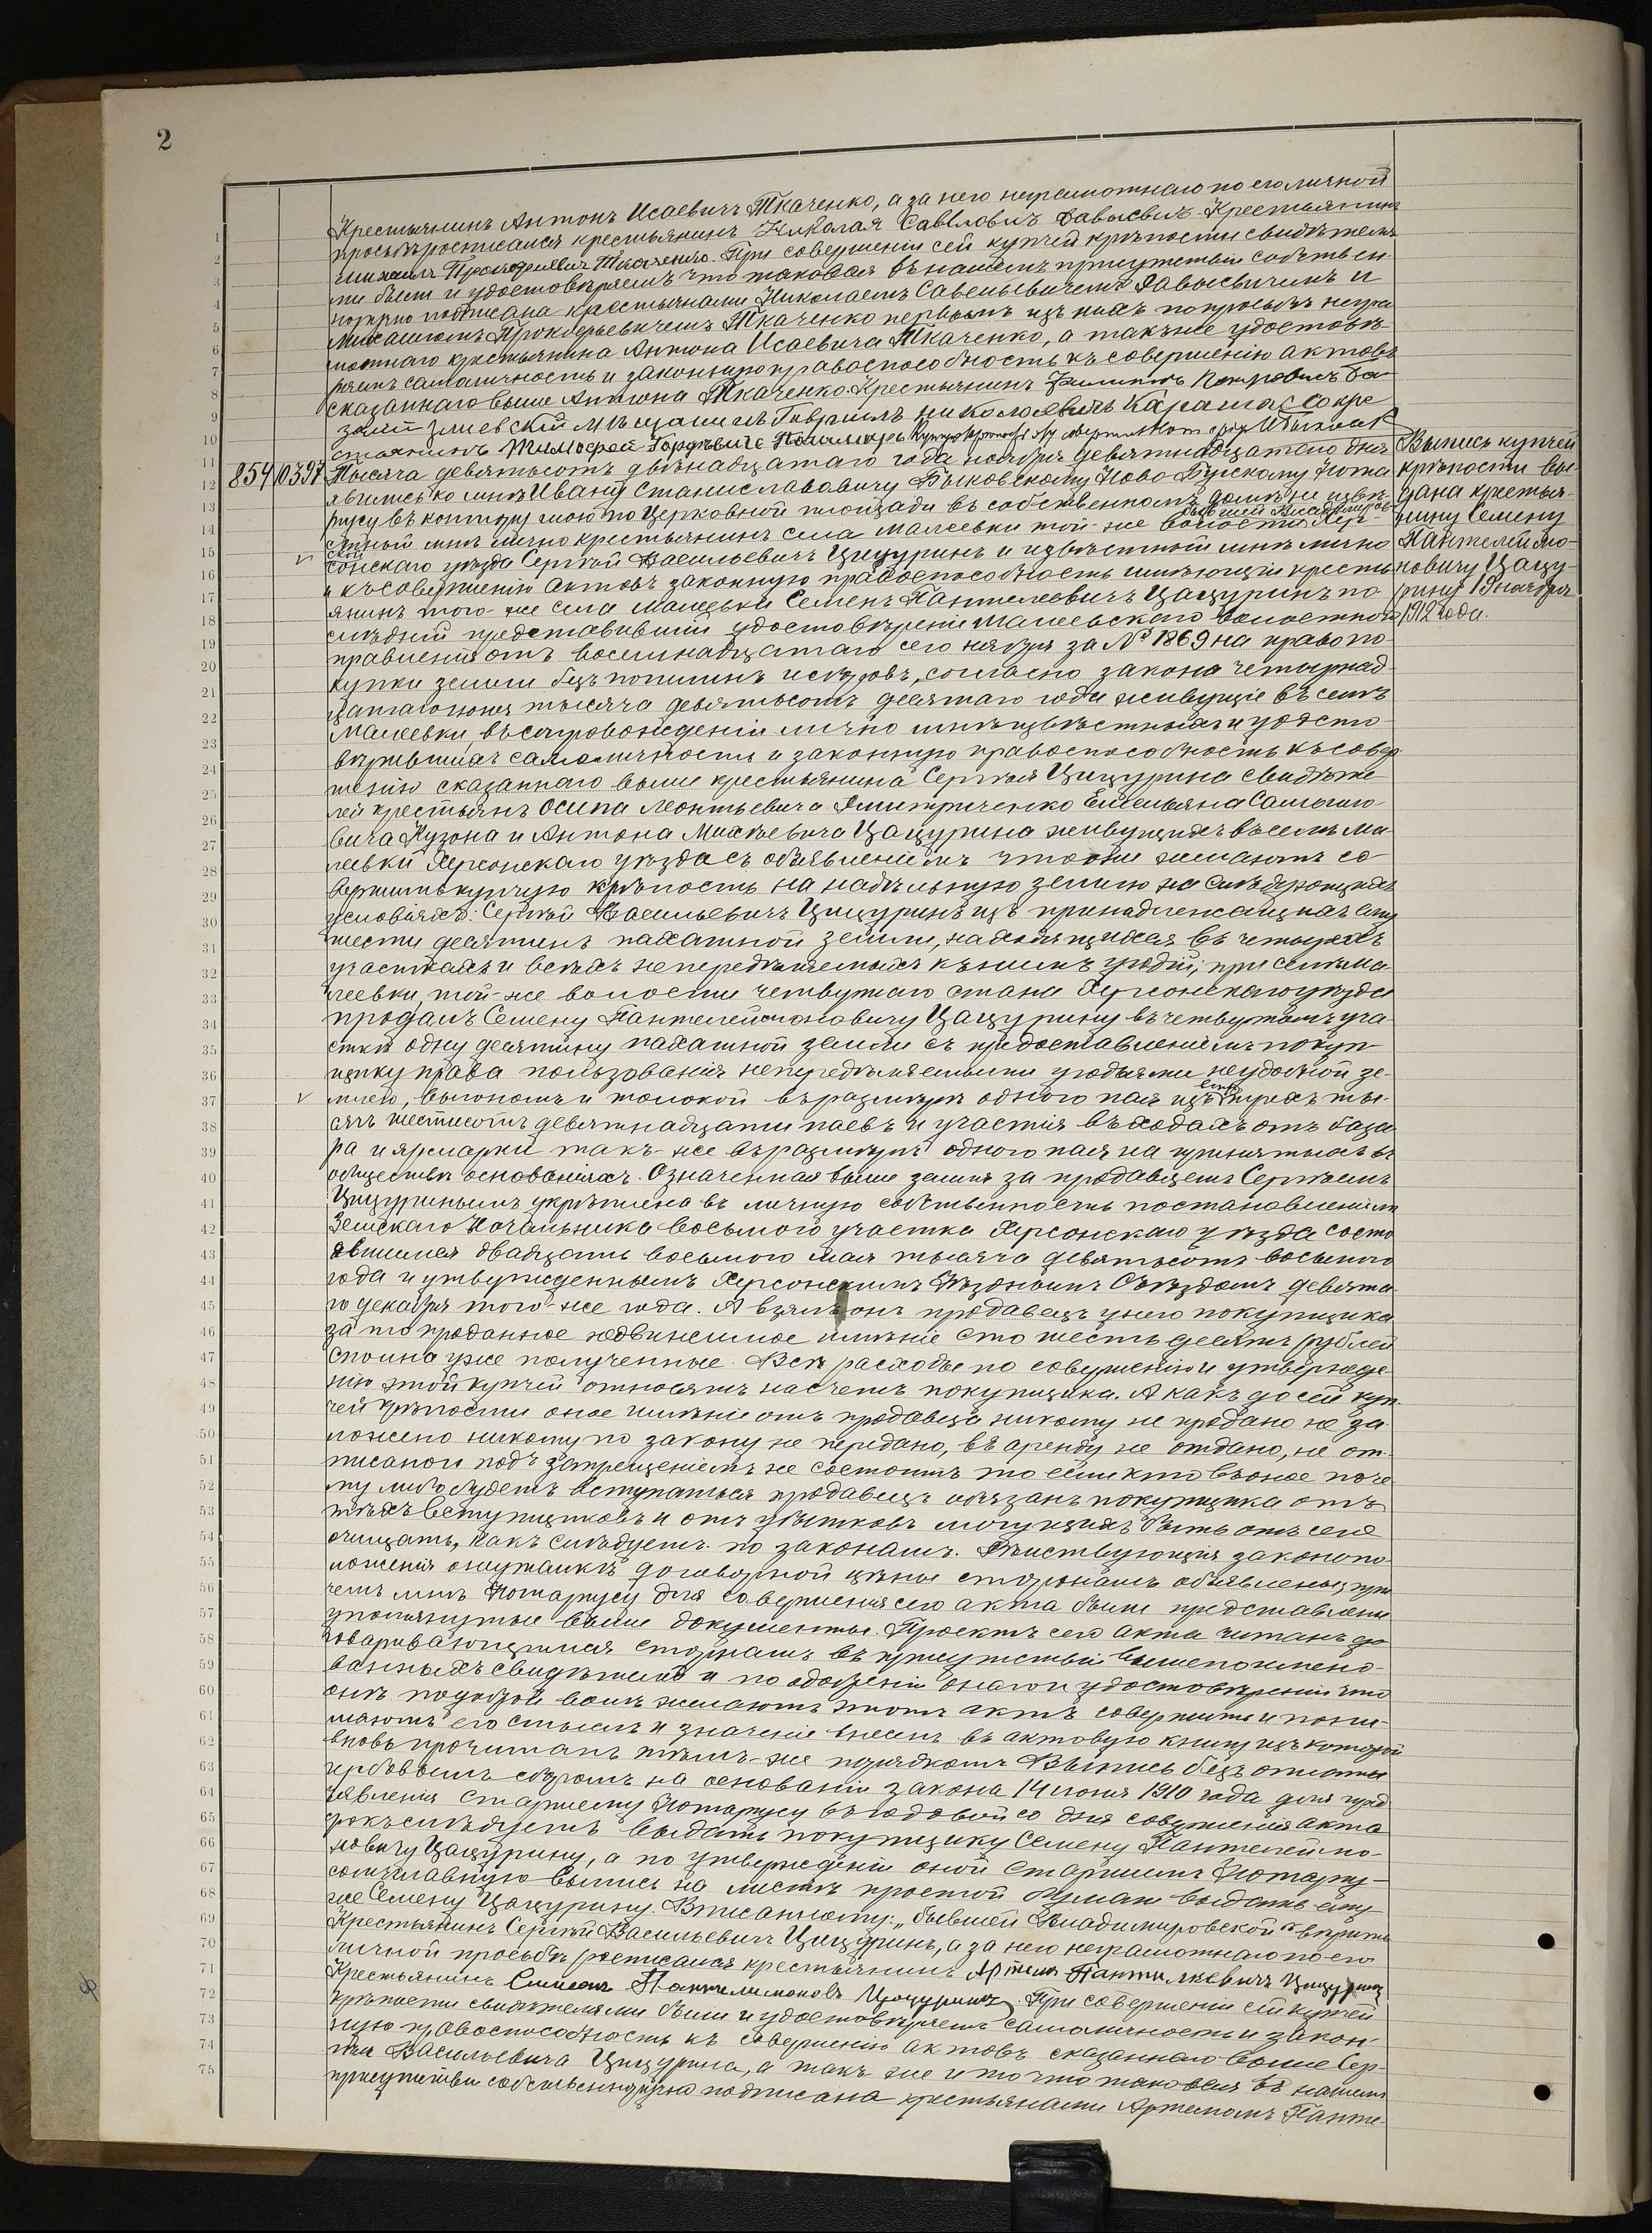 2
Крестьянинъ Антонъ Исаевичъ Ткаченко, а за него неграмотнаго по его личной
просьбѣ росписался крестьянинъ Николая Савеловичъ Давысевичъ. Крестьянинъ
Михаилъ Прокофіевичъ Ткаченко. При совершеніи сей купчей крѣпости свидѣтеля
ми были и удостовѣряемъ что таковая въ нашемъ присутствіи собственно
норучно подписана крестьянами Николаемъ Савельевичемъ Давысевичемъ и
Михаиломъ Прокофьевичемъ Ткаченко первымъ изъ нихъ по просьбѣ негра
мотнаго крестьянина Антона Исаевича Ткаченко, а также удостовѣ
ряемъ самоличность и законную правоспособность къ совершенію актовъ
сказаннаго выше Антона Ткаченко. Крестьянинъ Филиппъ Петровичъ
Змиевскій мѣщанинъ Гавриилъ Николоевичъ Карамас кре
стьянинъ Тимофей Гордѣевичъ Пономарь
854 10397 Тысяча девятьсотъ двѣнадцатаго года ноября девятнадцатаго дня
явились ко мнѣ Ивану Станиславовичу Быковскому Ново-Бугскому Нота
ріусу въ контору мою по Церковной площади въ собственномъ домѣ не извѣ
стный мнѣ лично крестьянинъ села Малеевки той-же волости Хер-
бывшей Владимиров
ской
сонскаго уѣзда Сергѣй Васильевичъ Цицуринъ и извѣстный мнѣ лично
и къ совершенію актовъ законную правоспособность имѣющій кресть
янинъ того-же села Малеевки Семенъ Пантелеевичъ Цацуринъ по
слѣдній представившій удостовѣреніе Малеевскаго волостного
правленія отъ восемнадцатаго сего ноября за № 1869 на право по
купки земли безъ пошлинъ и сборовъ, согласно закона четырнад
цатаго іюня тысяча девятьсотъ десятаго года живущіе въ селѣ
Малеевки, въ сопровожденіи лично мнѣ извѣстныхъ и удосто
вѣрившихъ самоличность и законную правоспособность къ совер
шенію сказаннаго выше крестьянина Сергѣя Цицурина свидѣте
лей крестьянъ Осипа Леонтьевича Дмитриченко Емельяна Самойло
вича Кузона и Антона Михѣевича Цацурина живущихъ въ селѣ Ма
леевки Херсонскаго уѣзда съ объявленіемъ что они желаютъ со
вершить купчую крѣпость на надѣльную землю на слѣдующихъ
условіяхъ: Сергѣй Васильевичъ Цицуринъ изъ принадлежащихъ ему
шести десятинъ пахатной земли, находящихся въ четырехъ
участкахъ и всѣхъ непередѣляемыхъ къ нимъ угодій, при селѣ Ма
леевки, той-же волости четвертаго стана Херсонскаго уѣзда
продалъ Семену Пантелеймоновичу Цацурину въ четвертомъ уча
сткѣ одну десятину пахатной земли съ предоставленіемъ покуп
щику права пользованія непередѣляемыми угодьями неудобной зе-
млею, выгономъ и толокой въ размѣрѣ одного пая изъ трехъ ты-
сячъ шестисотъ девятнадцати паевъ и участія въ доходахъ отъ база
ра и ярмарки такъ-же въ размѣрѣ одного пая на принятыхъ въ
обществѣ основаніяхъ. Означенная выше земля за продавцемъ Сергѣемъ
Цицуринымъ укрѣплена въ личную собственность постановленіемъ
Земскаго Начальника восьмого участка Херсонскаго уѣзда состо
явшимся двадцать восьмого мая тысяча девятьсотъ восьмого
года и утвержденнымъ Херсонскимъ Уѣзднымъ Съѣздомъ девята
го декабря того-же года. А взялъ онъ продавецъ у него покупщика
за то проданное недвижимое имѣніе сто шестьдесятъ рублей
сполна уже полученные. Всѣ расходы по совершенію и утвержде
нію этой купчей относятъ на счетъ покупщика. А какъ до сей куп
чей крѣпости оное имѣніе отъ продавца никому не продано не за
ложено никому по закону не передано, въ аренду не отдано, не от-
писано и подъ запрещеніемъ не состоитъ то если кто въ оное поче
му либо будетъ вступаться продавецъ обязанъ покупщика отъ
тѣхъ вступщиковъ и отъ убытковъ могущихъ быть отъ сего
очищать, какъ слѣдуетъ по законамъ. Дѣйствующія законопо
ложенія о недачѣ договорной цѣны сторонамъ объявлены, при
чемъ мнѣ Нотаріусу для совершенія сего акта были представлены
упомянутые выше документы. Проектъ сего акта читанъ до
говаривающимся сторонамъ въ присутствіи вышепоимено-
ванныхъ свидѣтелей и по одобреніи онаго и удостовѣреніи что
онѣ по доброй волѣ желаютъ этотъ актъ совершить и пони-
маютъ его смыслъ и значеніе внесенъ въ актовую книгу изъ которой
вновь прочитанъ тѣмъ-же порядкомъ Выпись безъ оплаты
гербовымъ сборомъ на основаніи закона 14 іюня 1910 года для пред
явленія Старшему Нотаріусу въ годовой со дня совершенія акта
срокъ слѣдуетъ выдать покупщику Семену Пантелеймо-
новичу Цацурину, а по утвержденіи оной Старшимъ Нотаріу-
сомъ главную выпись на листѣ простой бумаги выдать ему
же Семену Цацурину. Вписанному: „бывшей Владимировской" вѣрить
Крестьянинъ Сергѣй Васильевичъ Цицуринъ, а за него неграмотнаго по его
личной просьбѣ росписался крестьянинъ Артемъ Пантилѣевичъ Цицурин
Крестьянинъ Симеон Пантелимоновъ Цацуринъ. При совершеніи сей купчей
крѣпости свидѣтелями были и удостовѣряемъ самоличность и закон-
ную правоспособность къ совершенію актовъ сказаннаго выше Сер-
гѣя Васильевича Цицурина, а такъ же и то что таковая въ нашемъ
присутствіи собственноручно подписана крестьянами Артемомъ Панте-
Выпись купчей
крѣпости вы-
дана крестья-
нину Семену
Пантелеймо-
новичу Цацу-
рину 19 ноября
1912 года.